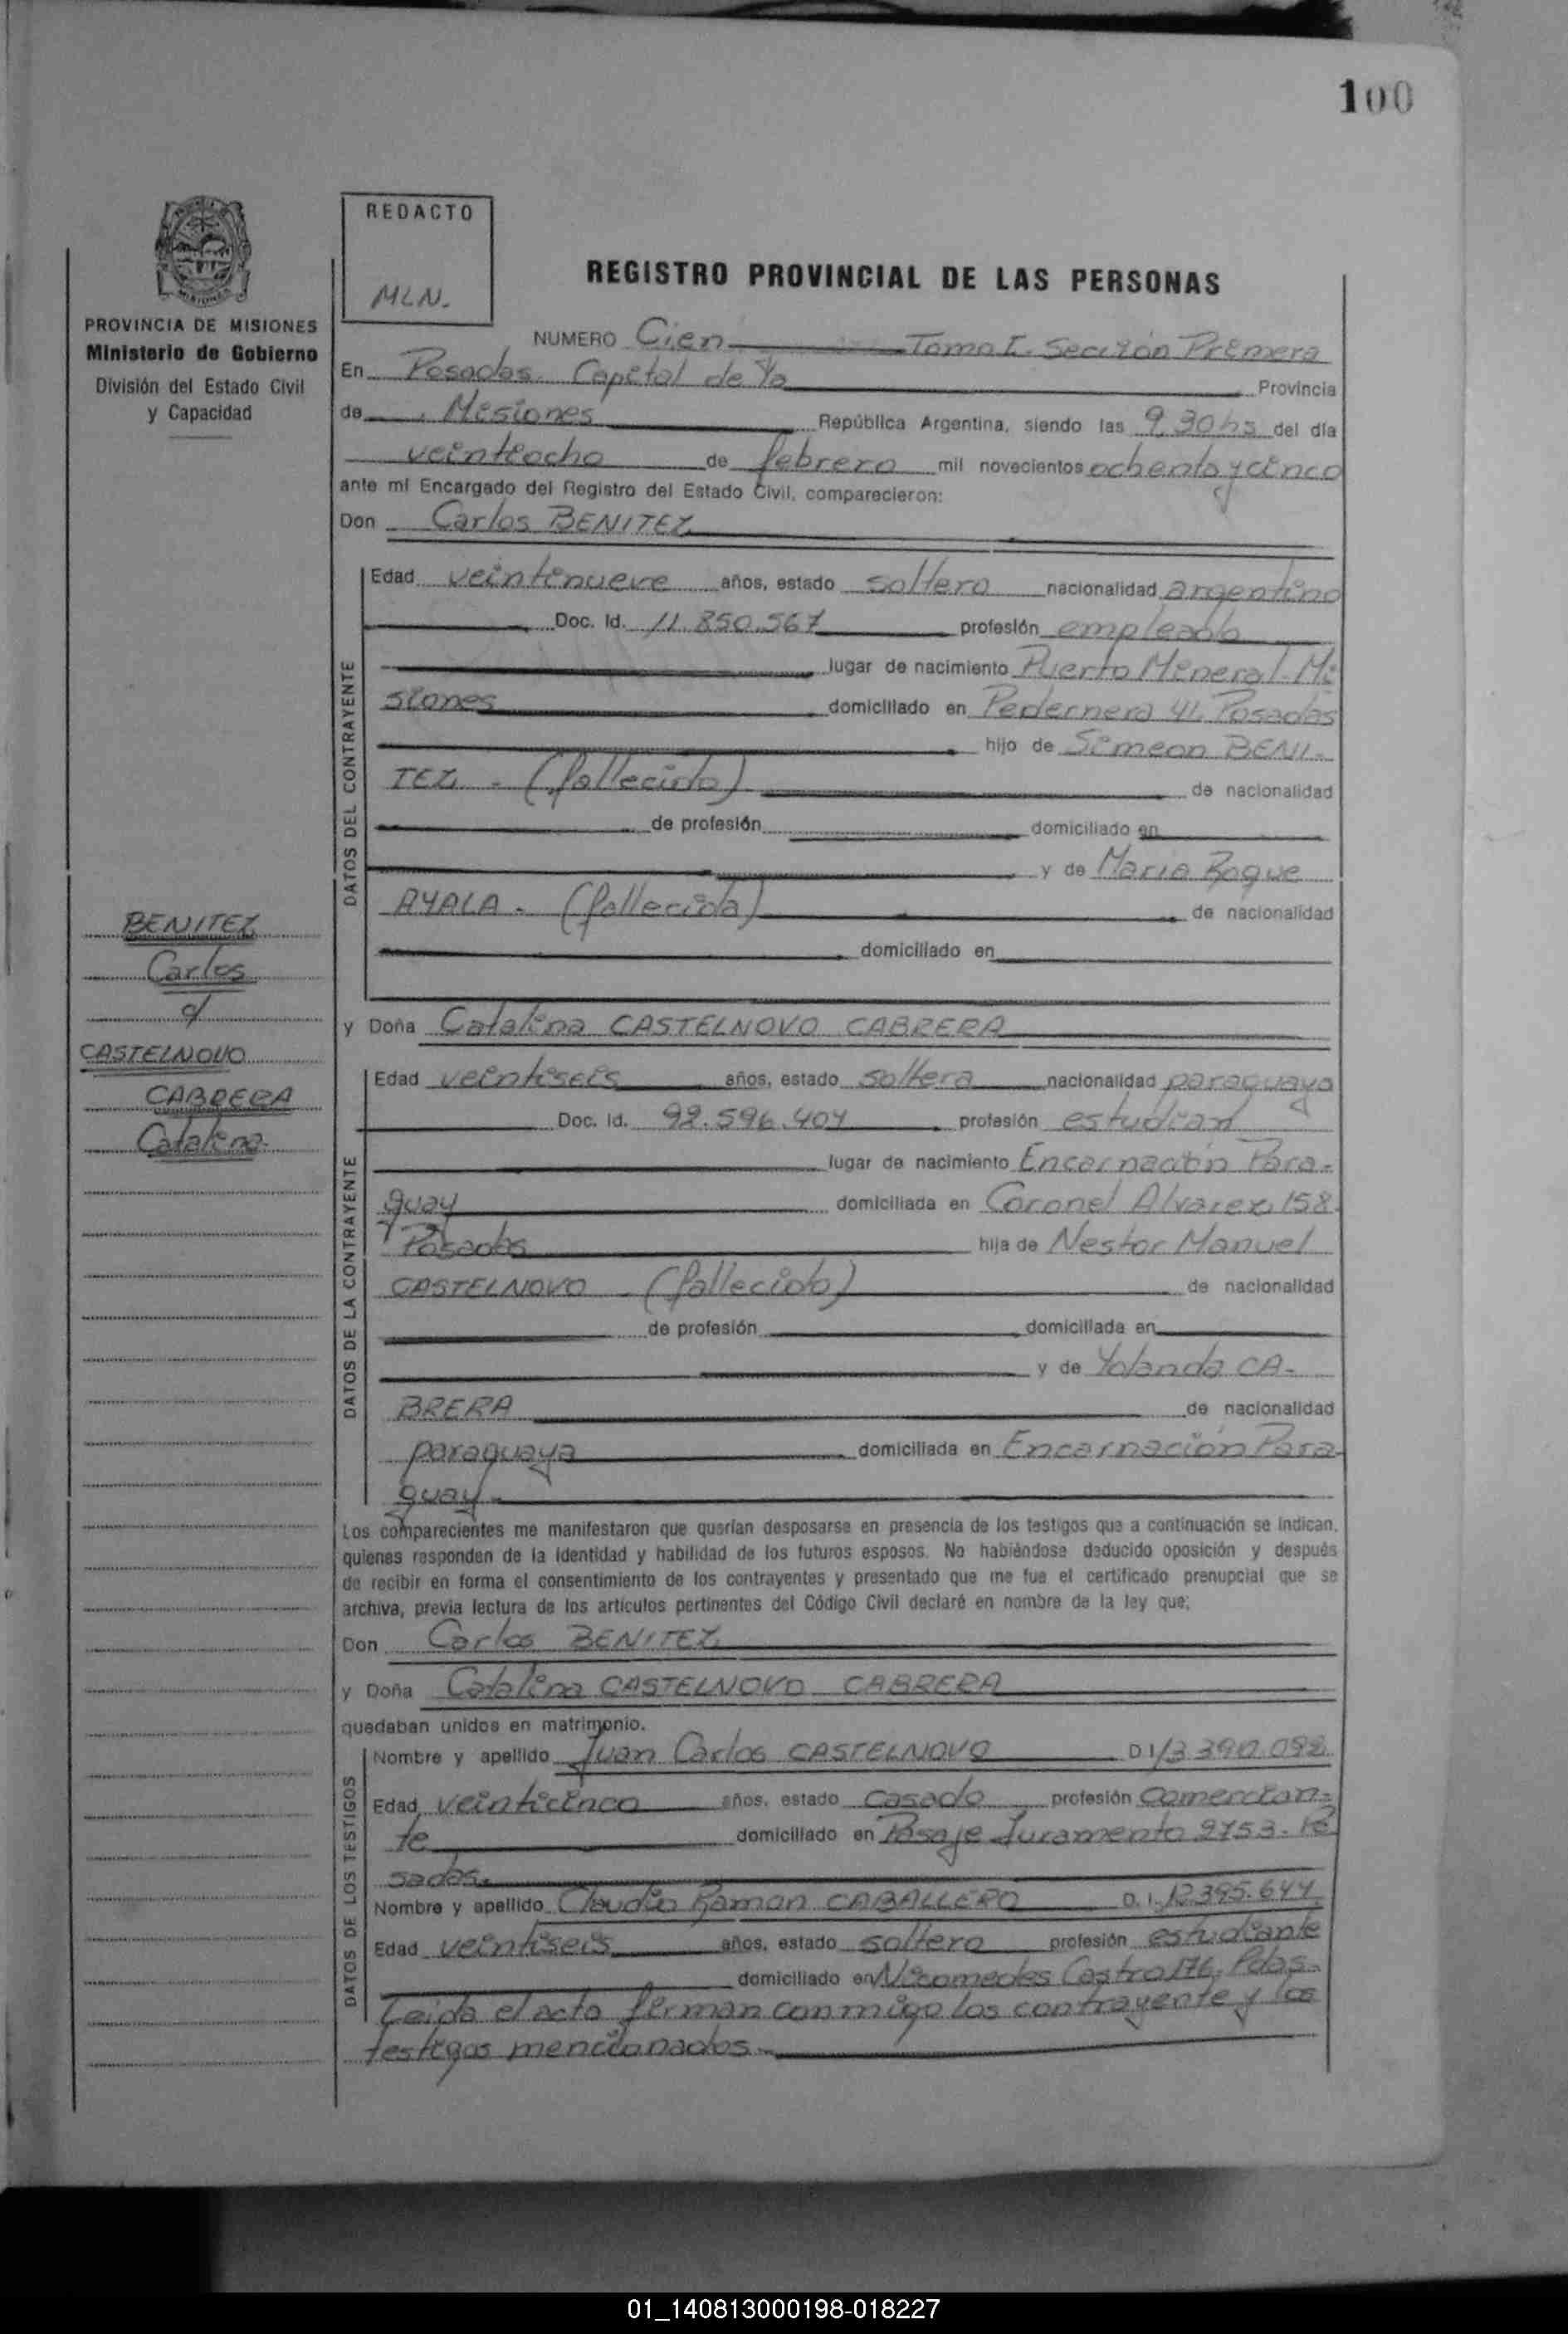 100
REDACTO
MLN.
PROVINCIA DE MISIONES
Ministerio de Gobierno
División del Estado Civil
y Capacidad
REGISTRO PROVINCIAL DE LAS PERSONAS
NUMERO Cien Tomo I. Sección Primera
En Posadas. Capital de la Provincia
de Misiones República Argentina, siendo las 9,30 hs del día
veintiocho de febrero mil novecientos ochenta y cinco
ante mí Encargado del Registro del Estado Civil, comparecieron:
Don Carlos BENITEZ
DATOS DEL CONTRAYENTE
Edad veintinueve años, estado soltero nacionalidad argentino
Doc. Id. 11.850.567 profesión empleado
lugar de nacimiento Puerto Mineral-Mi
siones domiciliado en Pedernera 41. Posadas
hijo de Simeon BENI-
TEZ - (fallecido) de nacionalidad
de profesión domiciliado en
y de Maria Roque
AYALA - (fallecida) de nacionalidad
domiciliado en
BENITEZ
Carlos
c/
CASTELNOVO
CABRERA
Catalina
y Doña Catalina CASTELNOVO CABRERA
DATOS DE LA CONTRAYENTE
Edad veintiseis años, estado soltera nacionalidad paraguaya
Doc. Id. 92.596.404 profesión
lugar de nacimiento Encarnación Para-
guay domiciliada en Coronel Alvarez 158
Posadas hija de Nestor Manuel
CASTELNOVO - (fallecido) de nacionalidad
de profesión domiciliada en
y de Yolanda CA-
BRERA de nacionalidad
paraguaya domiciliada en Encarnación Para
guay-
Los comparecientes me manifestaron que querían desposarse en presencia de los testigos que a continuación se indican,
quienes responden de la identidad y habilidad de los futuros esposos. No habiéndose deducido oposición y después
de recibir en forma el consentimiento de los contrayentes y presentado que me fue el certificado prenupcial que se
archiva, previa lectura de los artículos pertinentes del Código Civil declaré en nombre de la ley que;
Don Carlos BENITEZ
y Doña Catalina CASTELNOVO CABRERA
quedaban unidos en matrimonio.
DATOS DE LOS TESTIGOS
Nombre y apellido Juan Carlos CASTELNOVO DI 13.390.098
Edad veinticinco años, estado casado profesión Comercian-
te domiciliado en Pasaje Juramento 2753. Po
sadas.
Nombre y apellido Claudio Ramon CABALLERO D.I. 12.395.644
Edad veintiseis años, estado soltero profesión estudiante
domiciliado en Nicomedes Castro 176. Pdas.
Leida el acta firman conmigo los contrayente y los
testigos mencionados.
01_140813000198-018227